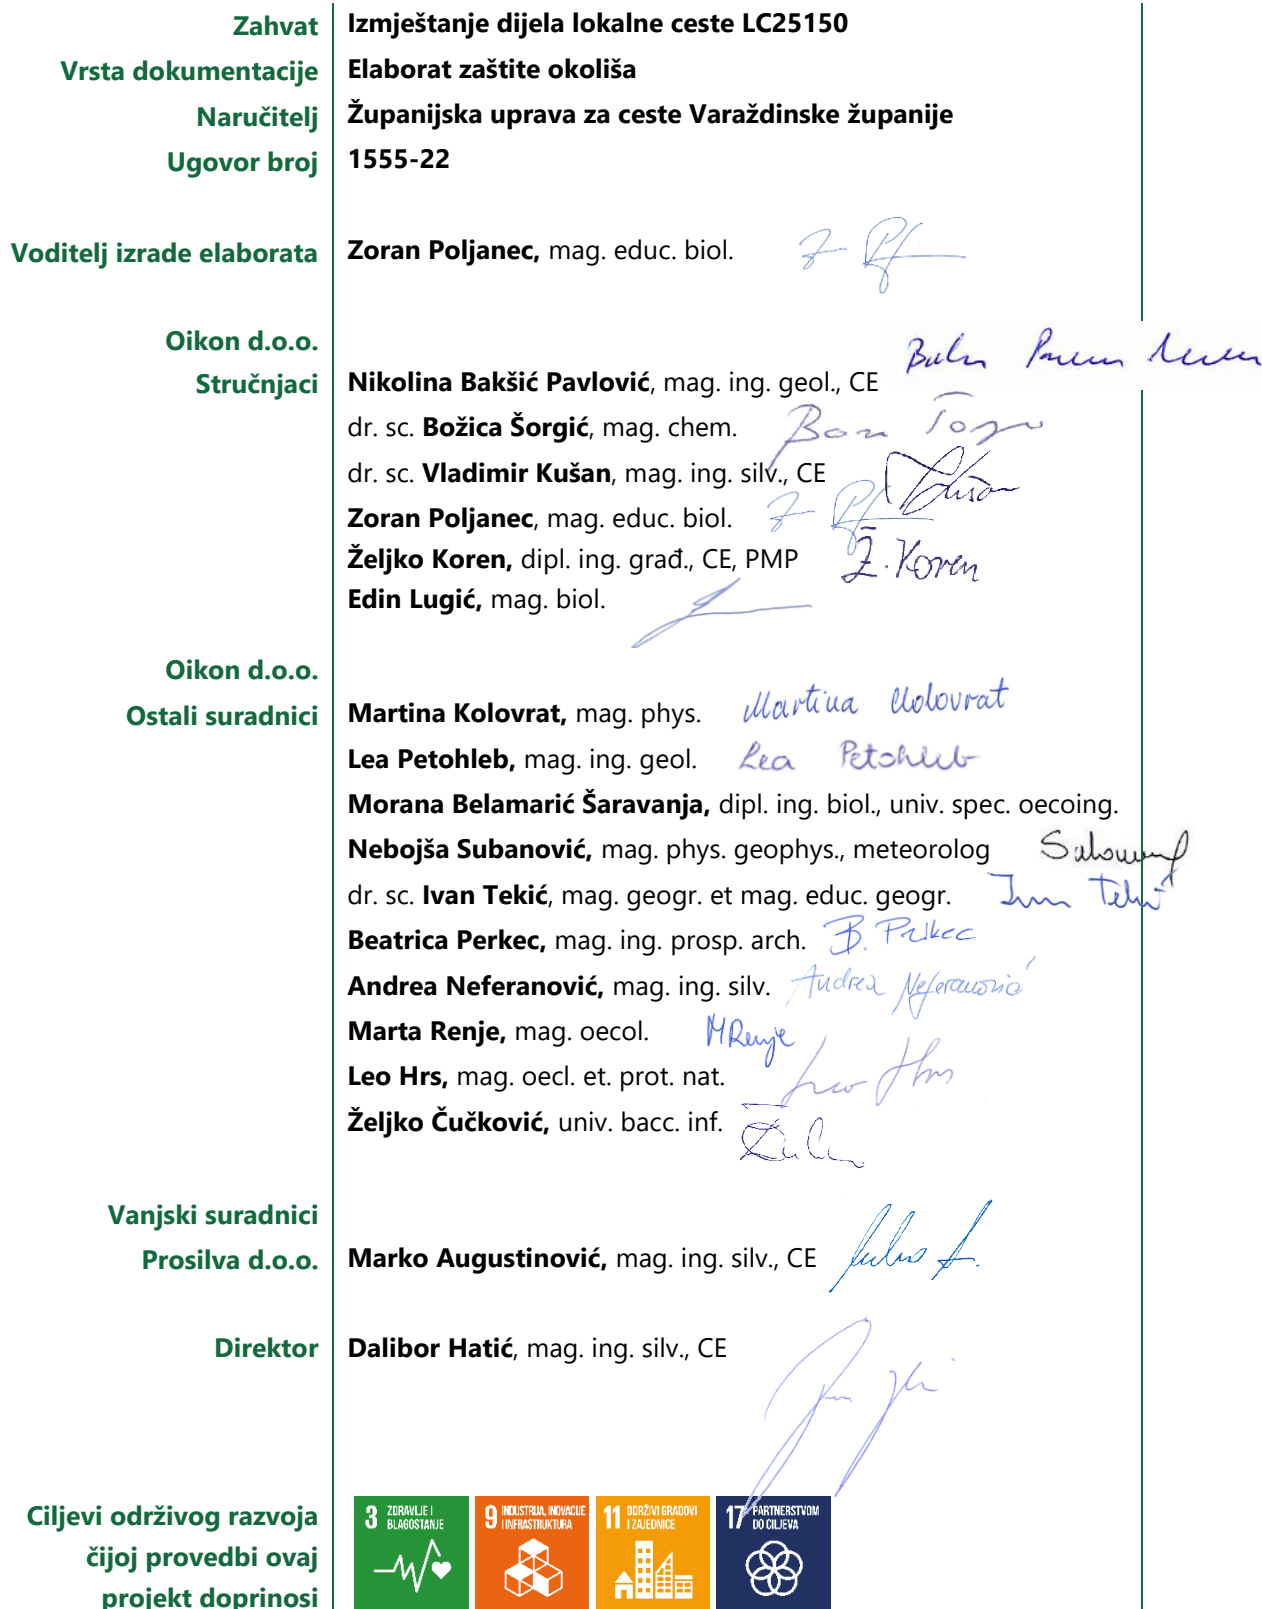 Zahvat Izmještanje dijela lokalne ceste LC25150
Vrsta dokumentacije Elaborat zaštite okoliša
Naručitelj Županijska uprava za ceste Varaždinske županije
Ugovor broj 1555-22
Voditelj izrade elaborata Zoran Poljanec, mag. educ. biol.
Oikon d.o.o.
Stručnjaci Nikolina Bakšić Pavlović, mag. ing. geol., CE
dr. sc. Božica Šorgić, mag. chem.
dr. sc. Vladimir Kušan, mag. ing. silv., CE
Zoran Poljanec, mag. educ. biol.
Željko Koren, dipl. ing. građ., CE, PMP Ž. Koren
Edin Lugić, mag. biol.
Oikon d.o.o.
Ostali suradnici Martina Kolovrat, mag. phys. Martina Kolovrat
Lea Petohleb, mag. ing. geol. Lea Petohleb
Morana Belamarić Šaravanja, dipl. ing. biol., univ. spec. oecoing.
Nebojša Subanović, mag. phys. geophys., meteorolog
dr. sc. Ivan Tekić, mag. geogr. et mag. educ. geogr. Ivan Tekić
Beatrica Perkec, mag. ing. prosp. arch. B. Perkec
Andrea Neferanović, mag. ing. silv. Andrea Neferanović
Marta Renje, mag. oecol. MRenje
Leo Hrs, mag. oecl. et. prot. nat. Leo Hrs
Željko Čučković, univ. bacc. inf.
Vanjski suradnici
Prosilva d.o.o. Marko Augustinović, mag. ing. silv., CE
Direktor Dalibor Hatić, mag. ing. silv., CE
Ciljevi održivog razvoja
čijoj provedbi ovaj
projekt doprinosi
3 ZDRAVLJE I
BLAGOSTANJE
9 INDUSTRIJA, INOVACIJE
I INFRASTRUKTURA
11 ODRŽIVI GRADOVI
I ZAJEDNICE
17 PARTNERSTVOM
DO CILJEVA